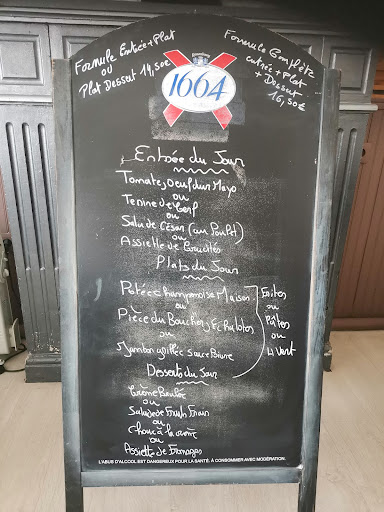 Formule Entrée + Plat
ou
Plat Dessert 14,50€
Formule Complète
entrée + plat
+ Dessert
16,50€
1664
Entrée du Jour
Tomate, Oeuf dur Mayo
ou
Terrine de Cerf
ou
Salade César (au Poulet)
ou
Assiette de Crudités
Plats du Jour
Potée champenoise Maison
ou
Pièce du Boucher, S. Echalotes
ou
Jambon grillée sauce Poivre
Frites
ou
Pâtes
ou
H Vert
Desserts du Jour
Crème Brulée
ou
Salade de Fruits Frais
ou
Choux à la crème
ou
Assiette de Fromages
L'ABUS D'ALCOOL EST DANGEREUX POUR LA SANTÉ. À CONSOMMER AVEC MODÉRATION.